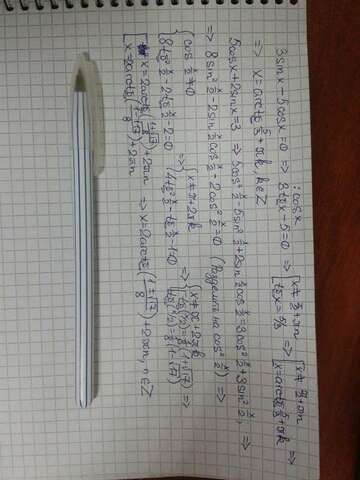 3sinx-5cosx=0 |:cosx => 3tgx-5=0 => [x≠π/2+πn [tgx=5/3 => [x≠π/2+πn [x=arctg 5/3+πk =>
=> x=arctg 5/3+πk, k∈Z
5cosx+2sinx=3 => 5cos² x/2-5sin² x/2+2sin x/2 cos x/2=3cos² x/2+3sin² x/2, =>
=> 8sin² x/2-2sin x/2 cos x/2-2cos² x/2=0 (Разделим на cos² x/2) =>
{cos x/2≠0 {8tg² x/2-2tg x/2-2=0 => {x≠π+2πk {4tg² x/2-tg x/2-1=0 => {x≠π+2πk [tg(x/2)=1/8(1+√17) [tg(x/2)=1/8(1-√17) =>
[x=2arctg(1+√17/8)+2πn [x=2arctg(1-√17/8)+2πn => x=2arctg(1±√17/8)+2πn, n∈Z